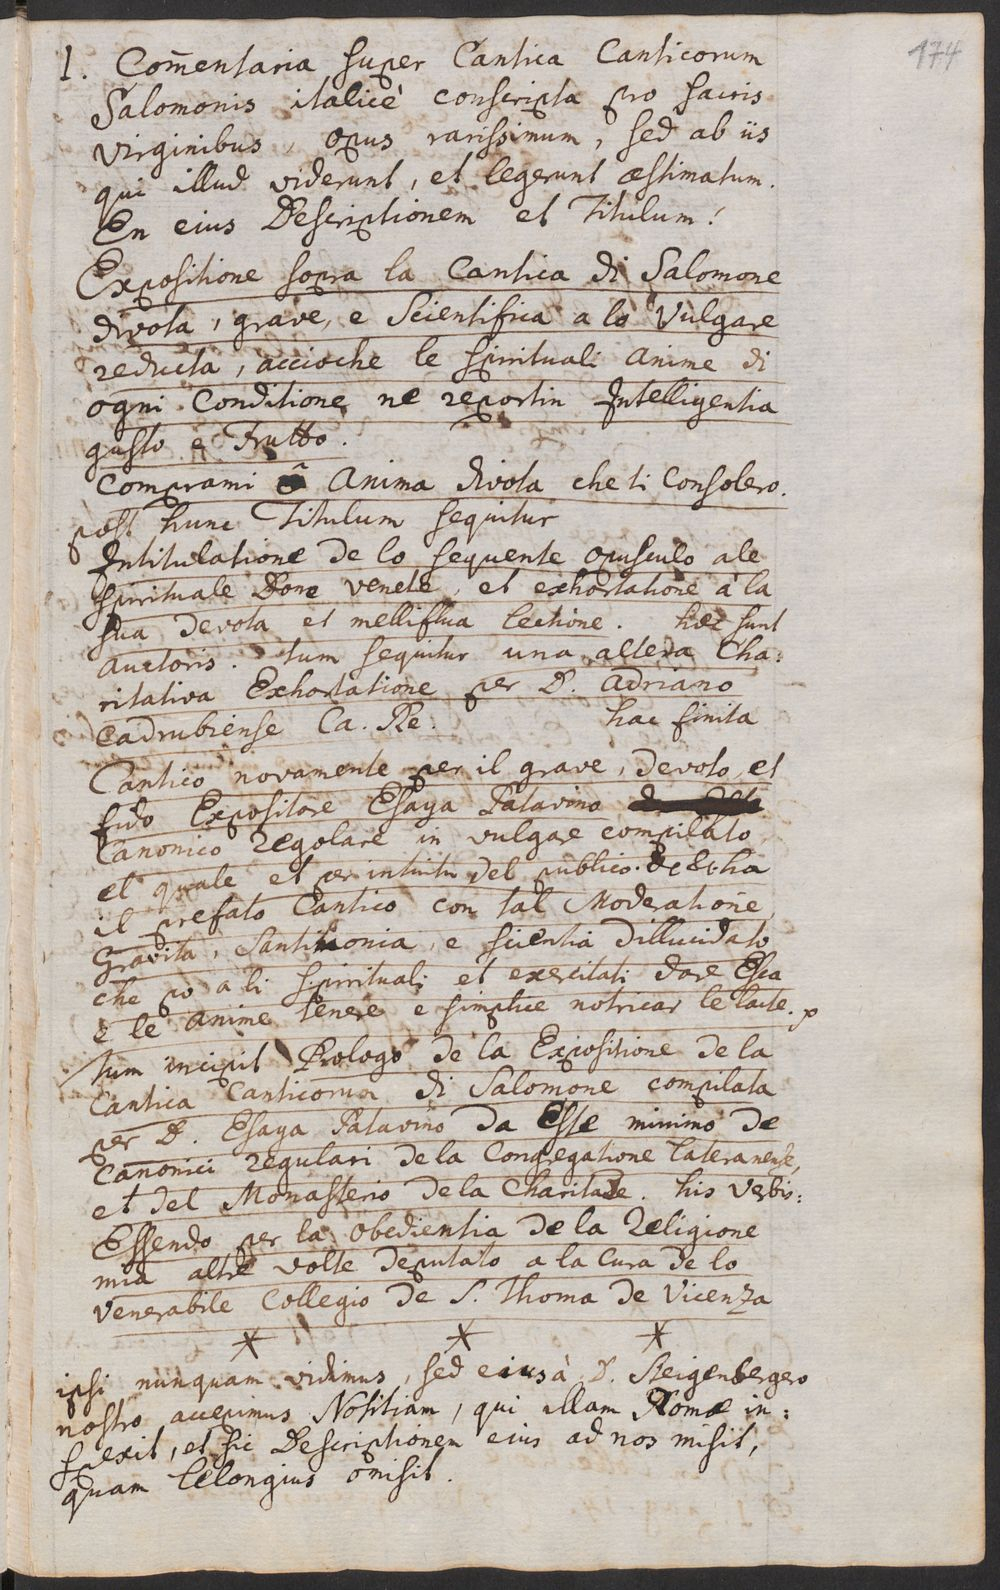 174
1. Com̃entaria super Cantica Canticorum
Salomonis italicè conscripta pro sacris
Virginibus, opus rarissimum, sed ab iis
qui illud viderunt, et legerunt æstimatum.
En eius Descriptionem et Titulum!
Expositione sopra la Cantica di Salomone
divota, grave, e Scientifica a lo Vulgare
reducta, accioche le spirituali anime di
ogni Conditione ne reportin Intelligentia
gusto e Frutto.
Comprami Anima divota che ti Consolero.
post hunc Titulum sequitur
Intitulatione de lo sequente opusculo ale
spirituale Done venete, et exhortatione à la
sua devota et melliflua lectione. hæc sunt
auctoris. tum sequitur una altera Cha:
ritativa Exhortatione per D. Adriano
Cadrubiense Ca. Re. hac finita
Cantico novamente per il grave, devoto, et
fido Expositore Esaya Patavino
Canonico regolare in vulgare compilato
el quale et per intuitu del publico. &c &c ha
il prefato Cantico con tal Moderatione
Gravita, Santimonia, e scientia dillucidato
che po a li spirituali et exercitati dare Esca
e le anime tenere e simplice notricar le lacte.
tum incipit Prologo de la Expositione de la
Cantica Canticorum di Salomone compilata
per D. Esaya Patavino da Este minimo de
Canonici regulari de la Congregatione lateranense,
et del Monasterio de la Charitade. his verbis:
Essendo per la obedientia de la Religione
mia altre volte deputato a la Cura de lo
venerabile Collegio de S. Thoma de Vicenza
* * *
ipsi nunquam vidimus, sed eius à D. Steigenbergero
nostro accepimus Notitiam, qui illam Romæ in:
spexit, et sic Descriptionem eius ad nos misit,
quam Lelongius omisit.